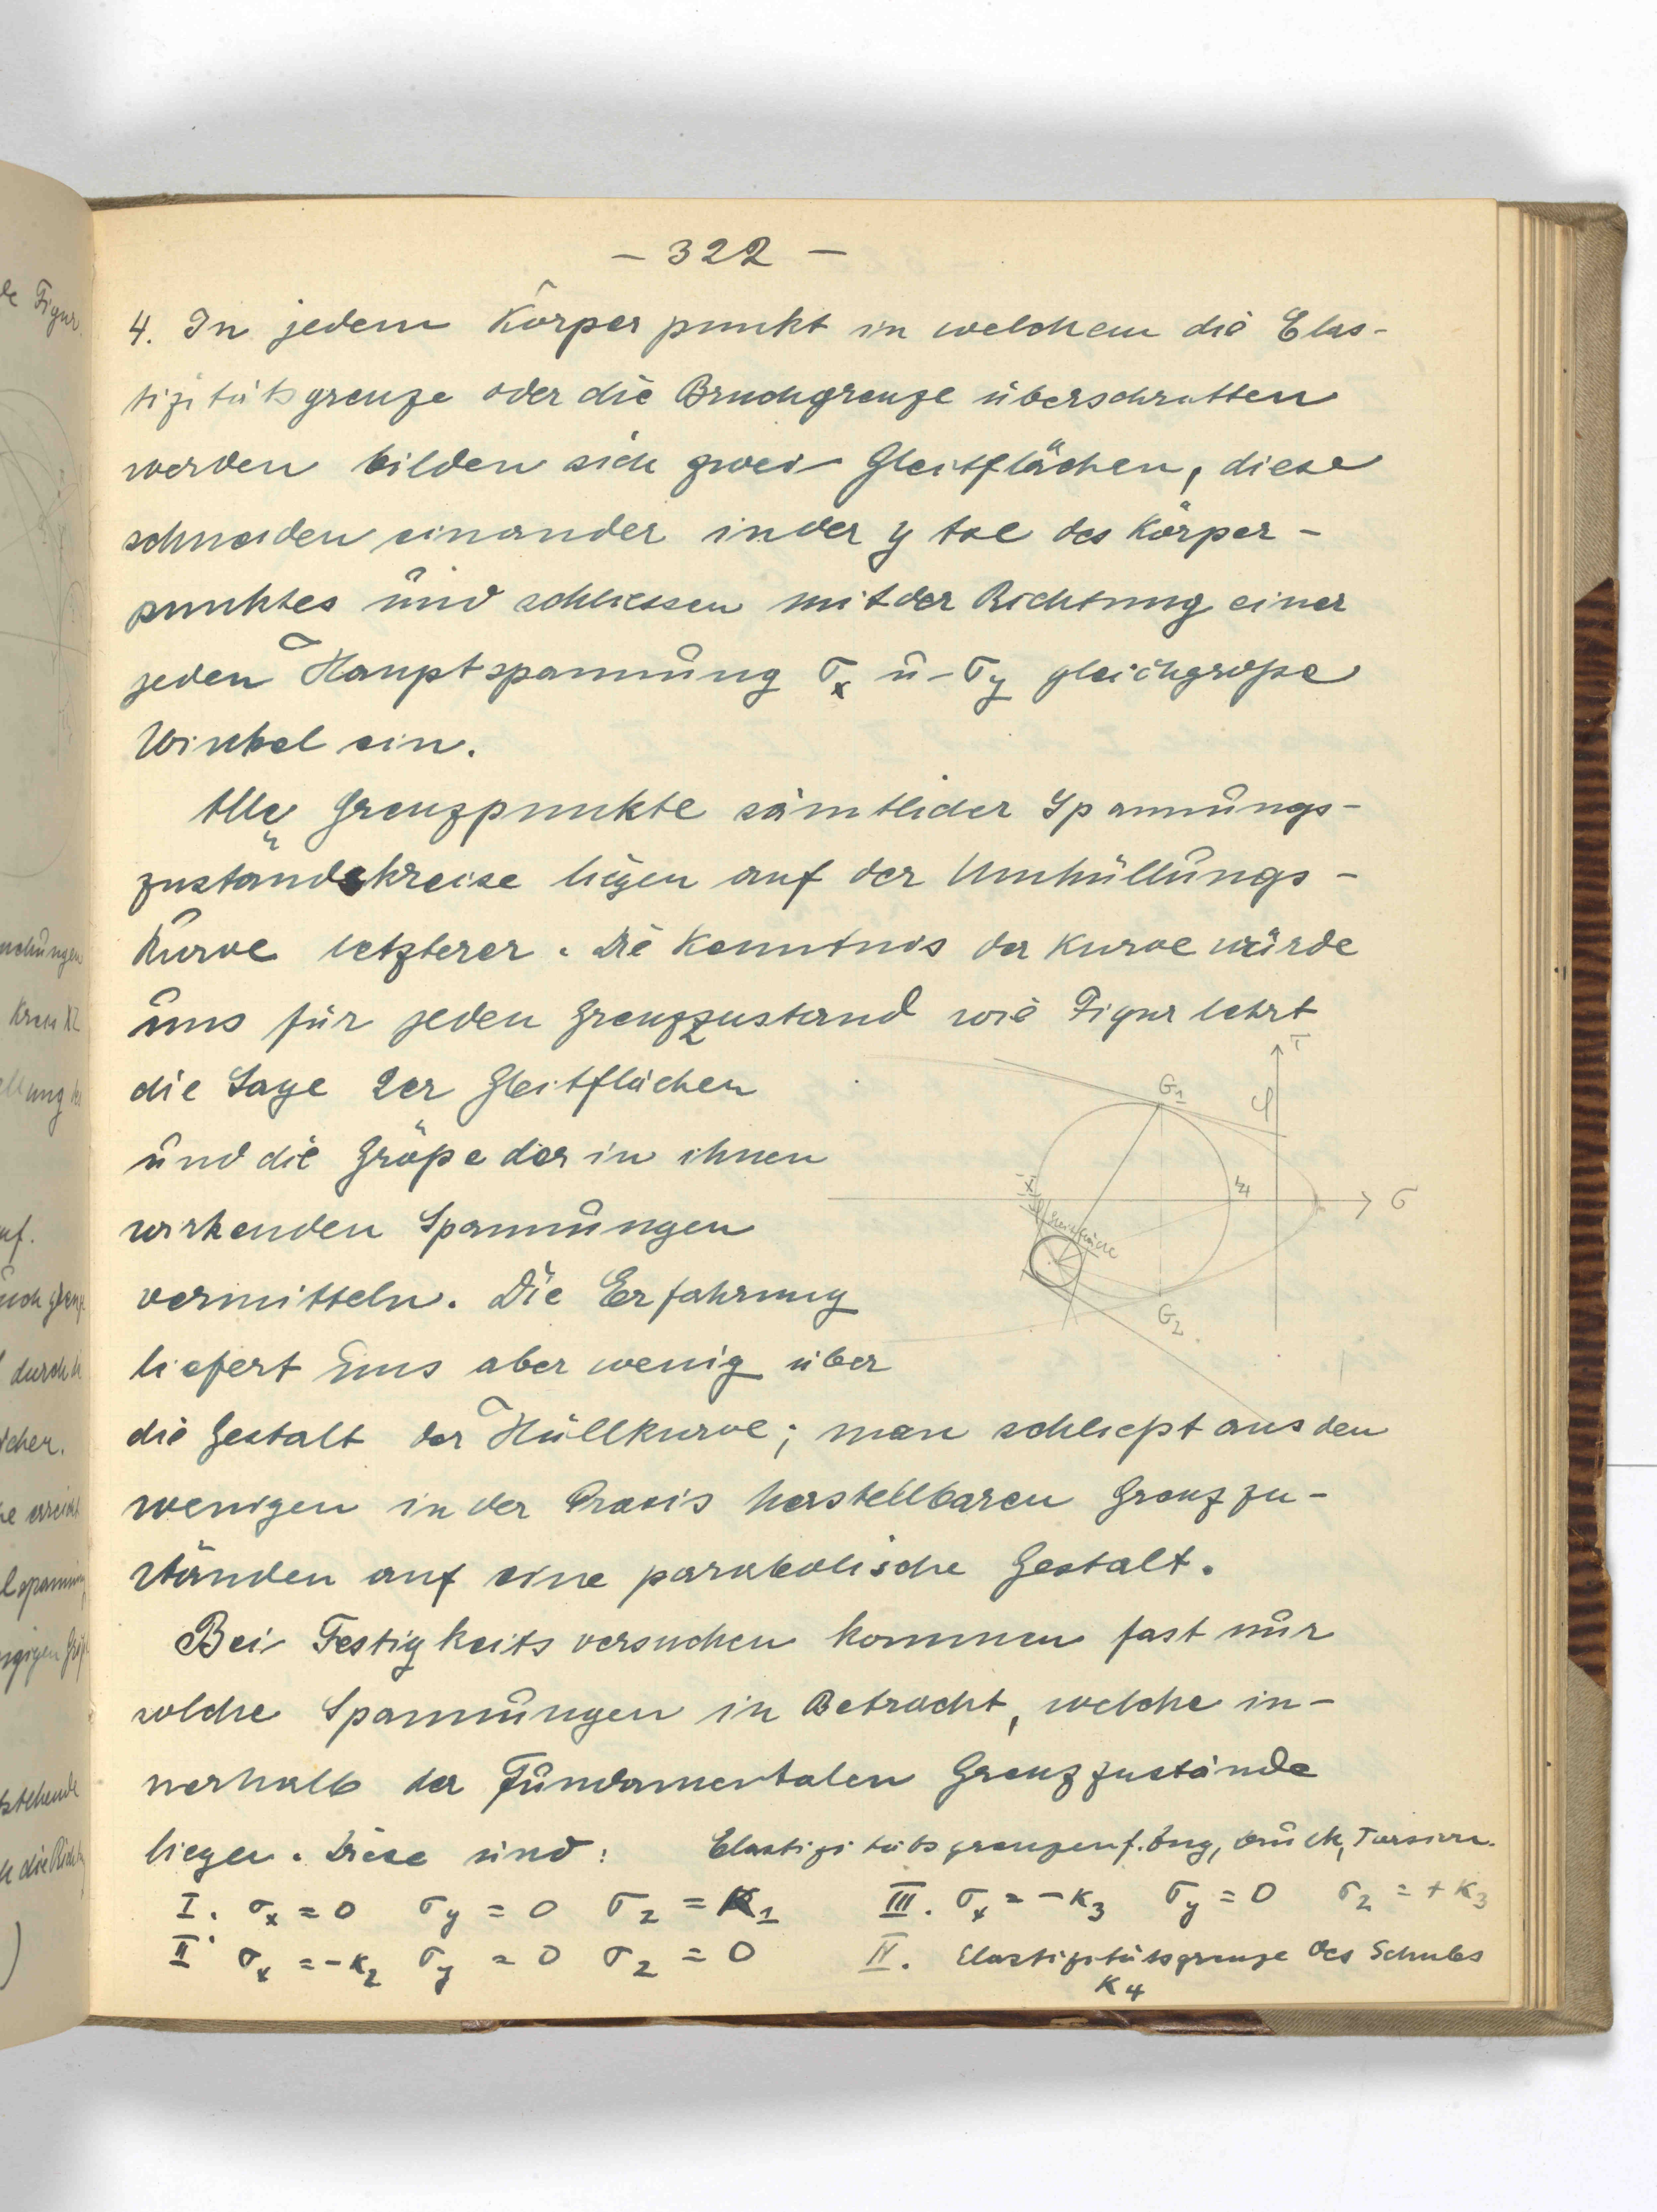 – 322 –
4. In jedem Körperpunkt in welchem die Elas-
tizitätsgrenze oder die Bruchgrenze überschritten
werden bilden sich zwei Gleitflächen, diese
schneiden einander in der y tse des Körper-
punktes und schliessen mit der Richtung einer
jeden Hauptspannung σx u - σy gleichgroße
Winkel ein.
Alle Grenzpunkte sämtlicher Spannungs-
zustandskreise liegen auf der Umhüllungs-
Kurve letzterer. Die Kenntnis der Kurve würde
uns für jeden Grenzzustand wie Figur lehrt
die Lage der Gleitflächen
und die Größe der in ihnen
wirkenden Spannungen
vermitteln. Die Erfahrung
liefert uns aber wenig über
die Gestalt der Hüllkurve; man schließt aus den
wenigen in der Praxis herstellbaren Grenzzu-
ständen auf eine parabolische Gestalt.
Bei Festigkeitsversuchen kommen fast nur
solche Spannungen in Betracht, welche in-
nerhalb der Fundamentalen Grenzzustände
liegen. Diese sind: Elastizitätsgrenzen f. Zug, Druck, Torsion.
I. σx = 0 σy = 0 σz = K1 III. σx = -K3 σy = 0 σz = + K3
II. σx = -K2 σy = 0 σz = 0 IV. Elastizitätsgrenze des Schubs
K4
τ
G1
φ
σ
G2